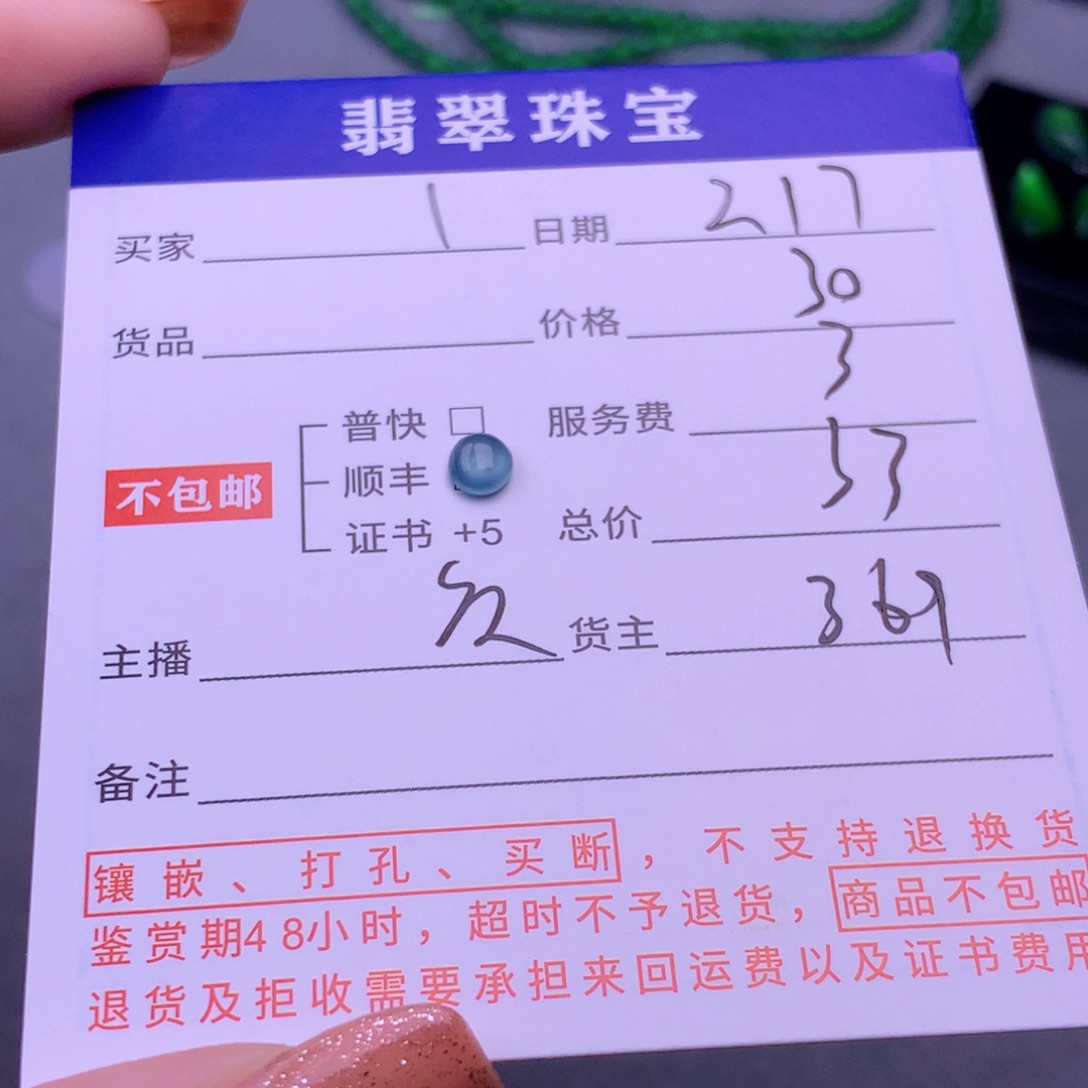 翡翠珠宝
买家 1 日期 217
货品 价格 30
普快 □ 服务费 3
不包邮 顺丰
证书 +5 总价
主播 货主 369
备注
镶嵌、打孔、买断，不支持退换货
鉴赏期48小时，超时不予退货，商品不包邮
退货及拒收需要承担来回运费以及证书费用